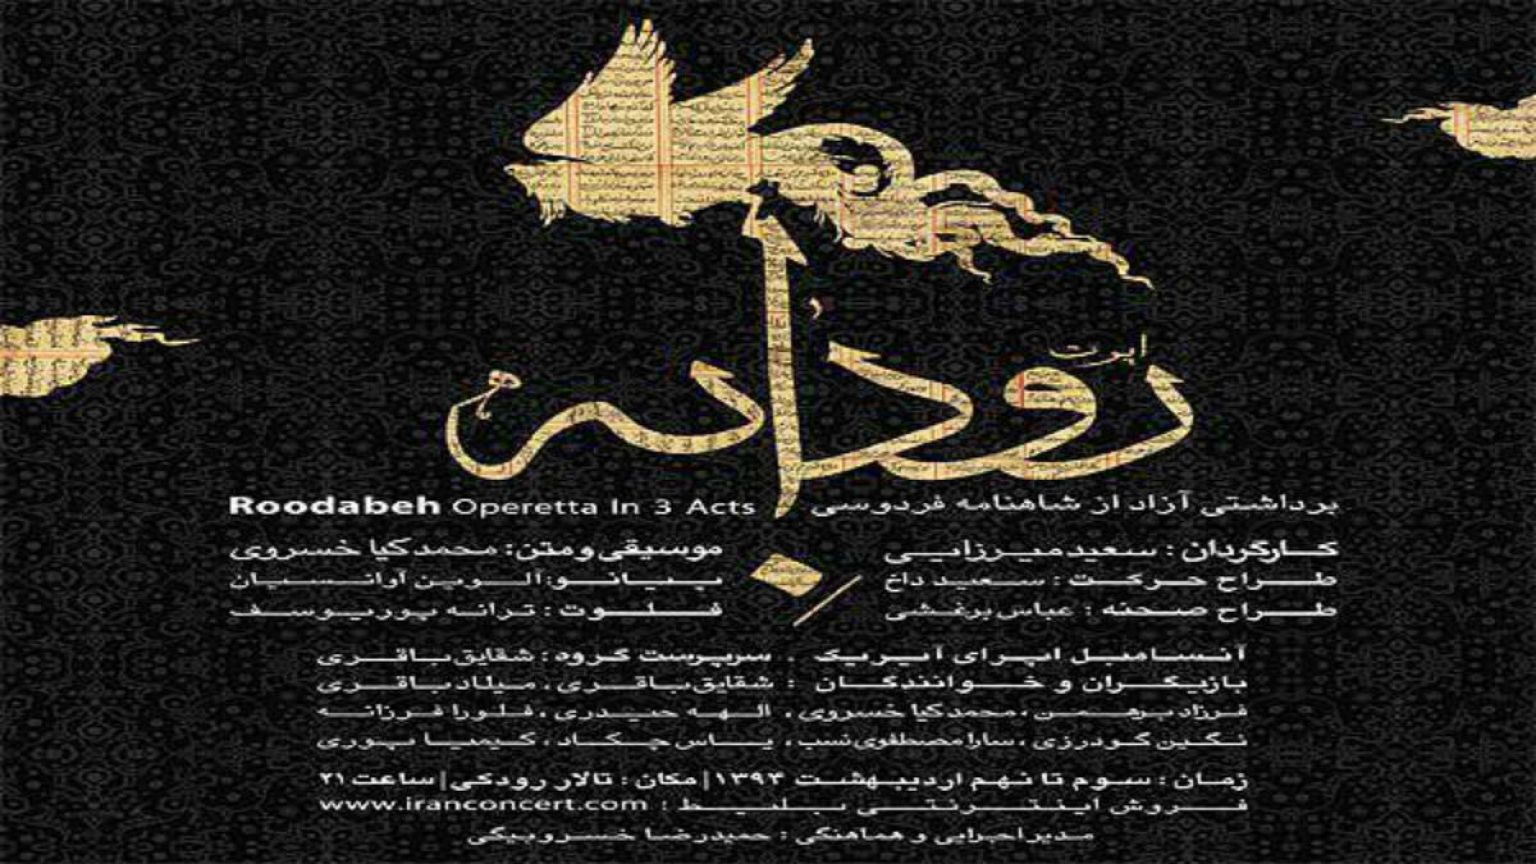 اپرت
رودابه
برداشتی آزاد از شاهنامه فردوسی Roodabeh Operetta In 3 Acts
کارگردان : سعید میرزایی
طراح حرکت : سعید داخ
طراح صحنه : عباس برغشی
موسیقی و متن: محمد کیا خسروی
پیانو: آلوین آوانسیان
فلوت : ترانه پوریوسف
آنسامبل اپرای آیریک . سرپرست گروه : شقایق باقری
بازیگران و خوانندگان : شقایق باقری ، میلاد باقری
فرزاد برهمن ، محمد کیا خسروی ، الهه حیدری ، فلورا فرزانه
نگین گودرزی ، سارا مصطفوی نسب ، یاس چکاد ، کیمیا پوری
زمان : سوم تا نهم اردیبهشت ۱۳۹۴ | مکان : تالار رودکی | ساعت ۲۱
فروش اینترنتی بلیط : www.iranconcert.com
مدیر اجرایی و هماهنگی : حمیدرضا خسروبیگی